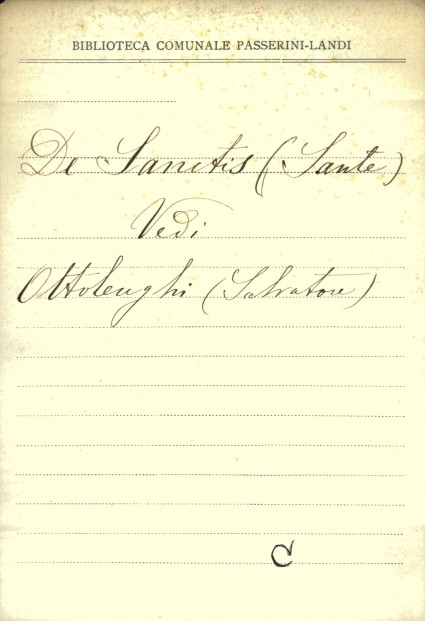 BIBLIOTECA COMUNALE PASSERINI-LANDI
De Sanctis (Sante)
Vedi
Ottolenghi (Salvatore)